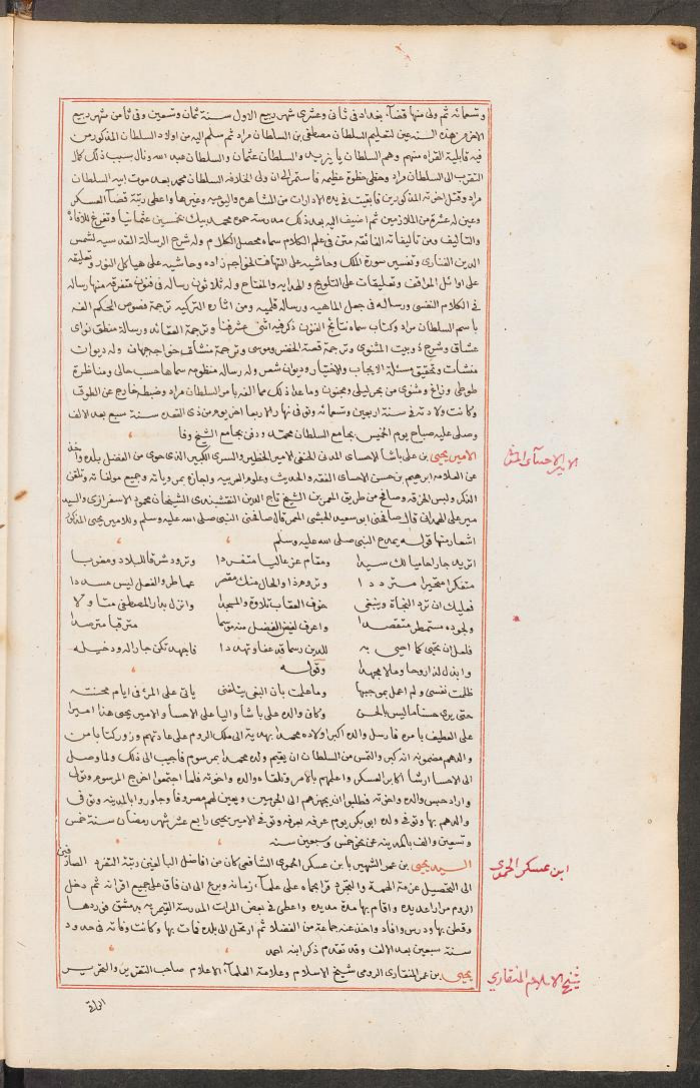 وتسعمائة ثم ولى منها قضآء بغداد فى ثانى وعشرى شهر ربيع الاول سنة ثمان وتسعين وفى ثامن شهر ربيع
الاخر من هذه السنه عين لتعليم السلطان مصطفى بن السلطان مراد ثم سلم اليه من اولاد السلطان المذكور من
فيه قابلية القراه منهم وهم السلطان بايزيد والسلطان عثمان والسلطان عبد الله ونال بسبب ذلك كمال
التقرب الى السلطان مراد وحظى حظوة عظيمه فاستمر الى ان ولى الخلافه السلطان محمد بعد موت ابيه السلطان
مراد وقتل اخوته المذكورين فابقيت فى يده الادارات من المشاهره واليوميه وغيرها واعطى رتبة قضآ العسكر
وعين له عشرة من الملازمين ثم اضيف اليه بعد ذلك مدرسة حمزه محمد بيك بخمسين عثمانيا وتفرغ للافادة
والتاليف ومن تاليفاته الفائقه متن فى علم الكلام سماه محصل الكلام وله شرح الرسالة القدسيه لشمس
الدين الفنارى وتفسير سورة الملك وحاشيه على التهافت لخواجه زاده وحاشيه على هياكل النور وتعليقه
على اوائل المواقف وتعليقات على التلويح والهدايه والمفتاح وله ثلاثون رساله فى فنون متفرقه منها رساله
فى الكلام النفسى ورساله فى جعل الماهيه ورساله قلميه ومن اثاره التركيه ترجمة فصوص الحكم الفه
باسم السلطان مراد وكتاب سماه نتايج الفنون ذكر فيه اثنى عشر فنا وترجمة العقائد ورسالة منطق نواى
عشاق وشرح ديبت المثنوى وترجمة قصة الخضر وموسى وترجمة منشآت خواجه جهان وله ديوان
منشآت وتحقيق مسئلة الايجاب والاختيار وديوان شعر وله رساله منظومه سماها حسب حالى ومناظرة
طوطى وزاغ ومثنوى من بحر ليلى ومجنون وما عدا ذلك مما الفه بامر السلطان مراد وضبطه خارج عن الطوق
وكانت ولادته فى سنة اربعين وتسعمائه وتوفى نهار الاربعا اخر يوم من ذى القعده سنة سبع بعد الالف
وصلى عليه صباح يوم الخميس بجامع السلطان محمد ودفن بجامع الشيخ وفا
الامير يحيى بن على باشا الاحساى المدنى الحنفى الامير الخطير والسرى الكبير الذى حوى من الفضل بلده واخذ
عن العلامه ابرهيم بن حسن الاحساى الفقه والحديث وعلوم العربيه واجازه بمروياته وجميع مولفاته وتلقن
الذكر ولبس الخرقه وصافح من طريق المعمرين الشيخ تاج الدين النقشبندى الشيخان محمود الاسفرازى والسيد
مير على الهمدانى قالا صافحنى ابو سعيد الحبشى المعمر قال صافحنى النبى صلى الله عليه وسلم وللامير يحيى المذكور
اشعار منها قوله يمدح النبى صلى الله عليه وسلم
اتريد جارا حاميا لك سيدا ومقام عز عاليا متفردا وترود شرقا للبلاد ومغربا
متفكرا متحيرا مترددا وتروم هذا والحال منك مقصر عما طر والفعل ليس مسددا
فعليك ان ترد النجاة وينبغى خوف العقاب تلاوة والمسجدا وانزل بدار المصطفى متاولا
ولجوده مستمطر متقصدا واعرف لفيض الفضل منه توسما مترقبا مترصدا
فلعل ان يحيى كما احيى به للدين رسما قد عفا وتهددا فاجهد تكن جارا له ودخيله
وابذل لذا روحا ومالا بجهدا وقوله
ظلمت نفسى ولم اعمل بموجبها وما علمت بان البغى يتلفنى ياتى على المرء فى ايام محنته
حتى يرى حسنا ما ليس بالحسن وكان والده على باشا واليا على الاحسا والامير يحيى هذا اميرا
على القطيف بامره فارسل والده اكبر اولاده محمدا بهديه الى ملك الروم على عادتهم وزور كتابا من
والدهم مضمونه انه كبر والتمس من السلطان ان يقيم ولده محمدا بمرسوم فاجيب الى ذلك ولما وصل
الى الاحسا ارشا اكابر العسكر واعلمهم بالامر وتلقاه والده واخوته فلما اجتمعوا اخرج المرسوم وتولى
واراد حبس والده واخوته فطلبوا ان يجهزهم الى الحرمين ويعين لهم مصروفا وجاوروا بالمدينه وتوفى
والدهم بها وتوفى ولده ابو بكر يوم عرفه بعرفه وتوفى الامير يحيى رابع عشر شهر رمضان سنة خمس
وتسعين والف بالمدينه عن نحو خمس وسبعين سنه
السيد يحيى بن عمر الشهير بابن عسكر الحموى الشافعى كان من افاضل البالغين رتبة التفرد الصارفين
الى التحصيل عزمة الهمة والتجرد قرا بحماه على علمآء زمانه وبرع الى ان فاق على جميع اقرانه ثم دخل
الروم مرارا عديده واقام بها مدة مديده واعطى فى بعض المرات المدرسة القيمريه بدمشق فوردها
وقطن بها ودرس وافاد واخذ عنه جماعة من الفضلا ثم ارتحل الى بلده فمات بها وكانت وفاته فى حدود
سنة سبعين بعد الالف وقد تقدم ذكر ابنه احمد
يحيى بن عمر المنقارى الرومى شيخ الاسلام وعلامة العلمآء الاعلام صاحب التقرير والتحرير
ابن عسكر الحموى
شيخ الاسلام المنقارى